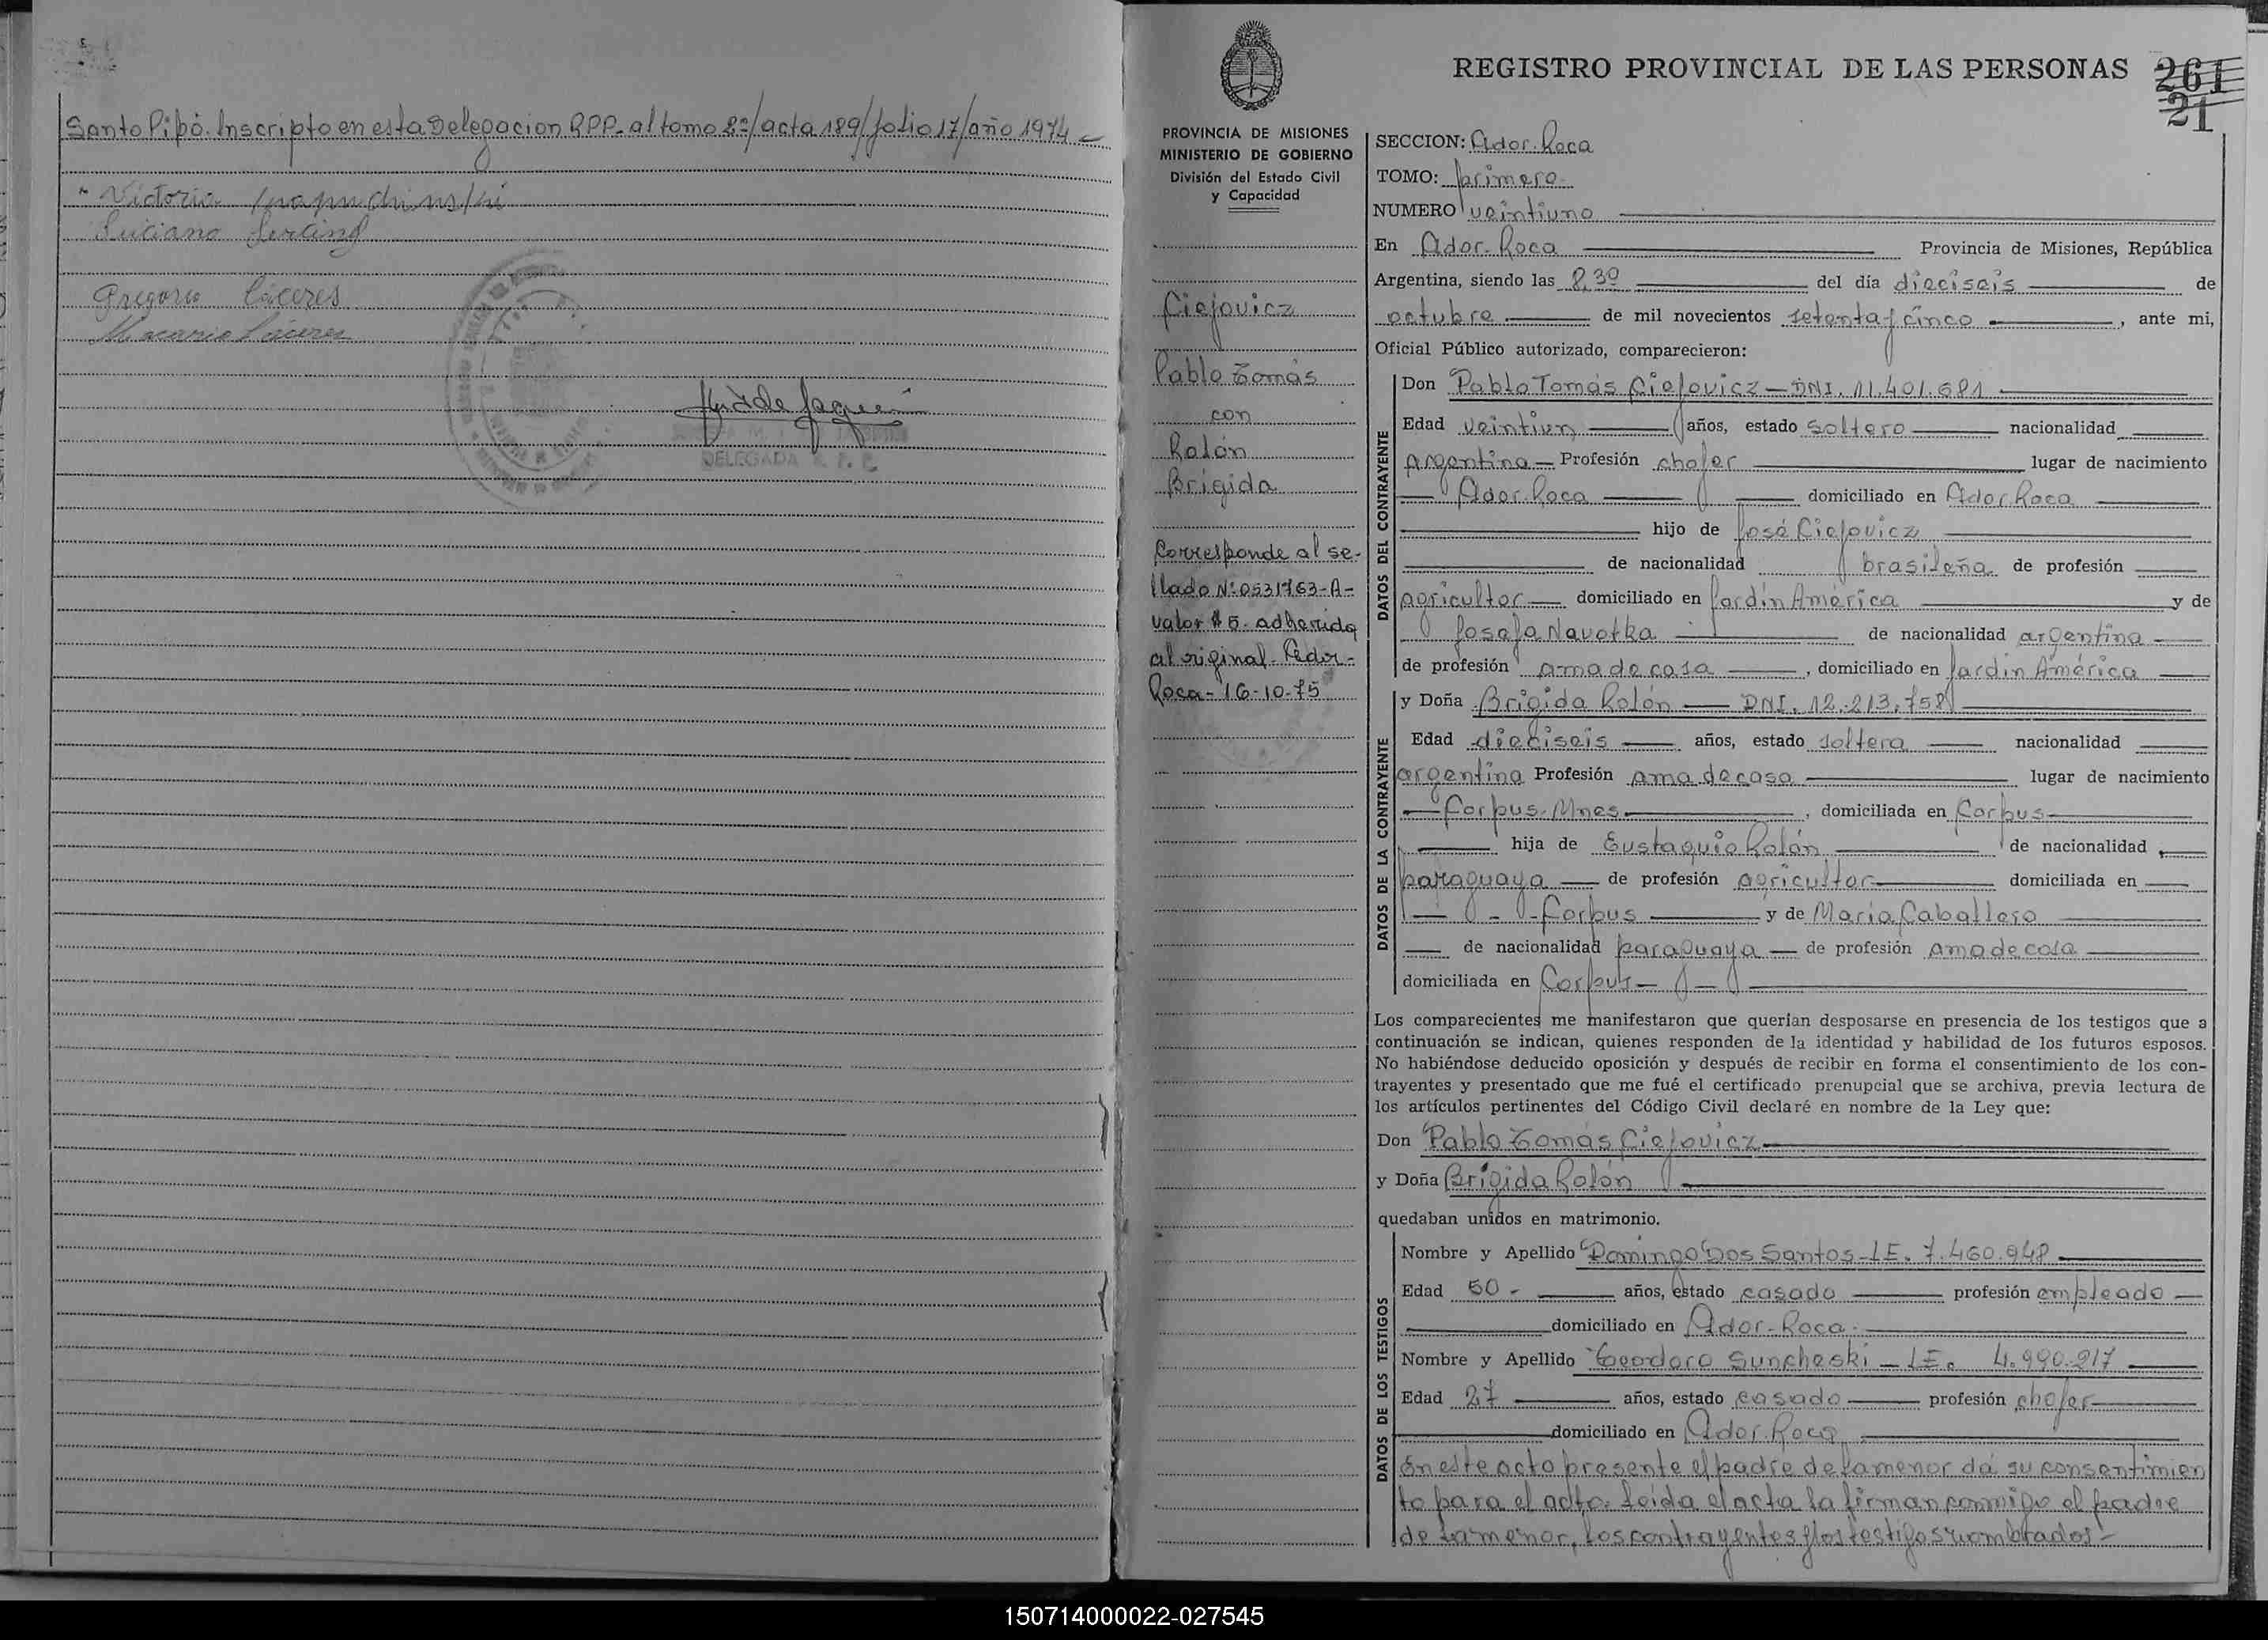 Santo Pipó. Inscripto en esta Delegacion R.P.P. al tomo 2º/acta 189/folio 17/año 1974
Victoria
Luciano
Gregorio Cáceres
Macario Cáceres
DELEGADA R. P. P.
REGISTRO PROVINCIAL DE LAS PERSONAS
261
21
PROVINCIA DE MISIONES
MINISTERIO DE GOBIERNO
División del Estado Civil
y Capacidad
Ciejovicz
Pablo Tomás
con
Rolón
Brígida
Corresponde al se-
llado Nº 0531763-A-
valor $ 5. adherido
al original. Ador-
Roca-16-10-75
SECCION: Ador. Roca
TOMO: primero
NUMERO veintiuno
En Ador. Roca Provincia de Misiones, República
Argentina, siendo las 8,30 del día dieciseis de
octubre de mil novecientos setenta y cinco, ante mi,
Oficial Público autorizado, comparecieron:
DATOS DEL CONTRAYENTE
Don Pablo Tomás Ciejovicz - DNI. 11.401.681
Edad veintiun años, estado soltero nacionalidad
Argentina Profesión chofer lugar de nacimiento
Ador. Roca domiciliado en Ador. Roca
hijo de José Ciejovicz
de nacionalidad brasileña de profesión
agricultor domiciliado en Jardín América y de
Josefa Navotka de nacionalidad argentina
de profesión ama de casa, domiciliado en Jardín América
DATOS DE LA CONTRAYENTE
y Doña Brígida Rolón - DNI. 12.213.758
Edad dieciseis años, estado soltera nacionalidad
argentina Profesión ama de casa lugar de nacimiento
Corpus. Mnes., domiciliada en Corpus
hija de Eustaquio Rolón de nacionalidad
paraguaya de profesión agricultor domiciliada en
Corpus y de María Caballero
de nacionalidad paraguaya de profesión ama de casa
domiciliada en Corpus
Los comparecientes me manifestaron que querían desposarse en presencia de los testigos que a
continuación se indican, quienes responden de la identidad y habilidad de los futuros esposos.
No habiéndose deducido oposición y después de recibir en forma el consentimiento de los con-
trayentes y presentado que me fué el certificado prenupcial que se archiva, previa lectura de
los artículos pertinentes del Código Civil declaré en nombre de la Ley que:
Don Pablo Tomás Ciejovicz
y Doña Brígida Rolón
quedaban unidos en matrimonio.
DATOS DE LOS TESTIGOS
Nombre y Apellido Domingo Dos Santos - LE. 7.460.948
Edad 50 años, estado casado profesión empleado
domiciliado en Ador. Roca
Nombre y Apellido Teodoro Suncheski - LE. 4.990.217
Edad 27 años, estado casado profesión chofer
domiciliado en Ador. Roca
En este acto presente el padre de la menor dá su consentimien
to para el acto. Leída el acta la firman conmigo el padre
de la menor, los contrayentes y los testigos nombrados-
150714000022-027545